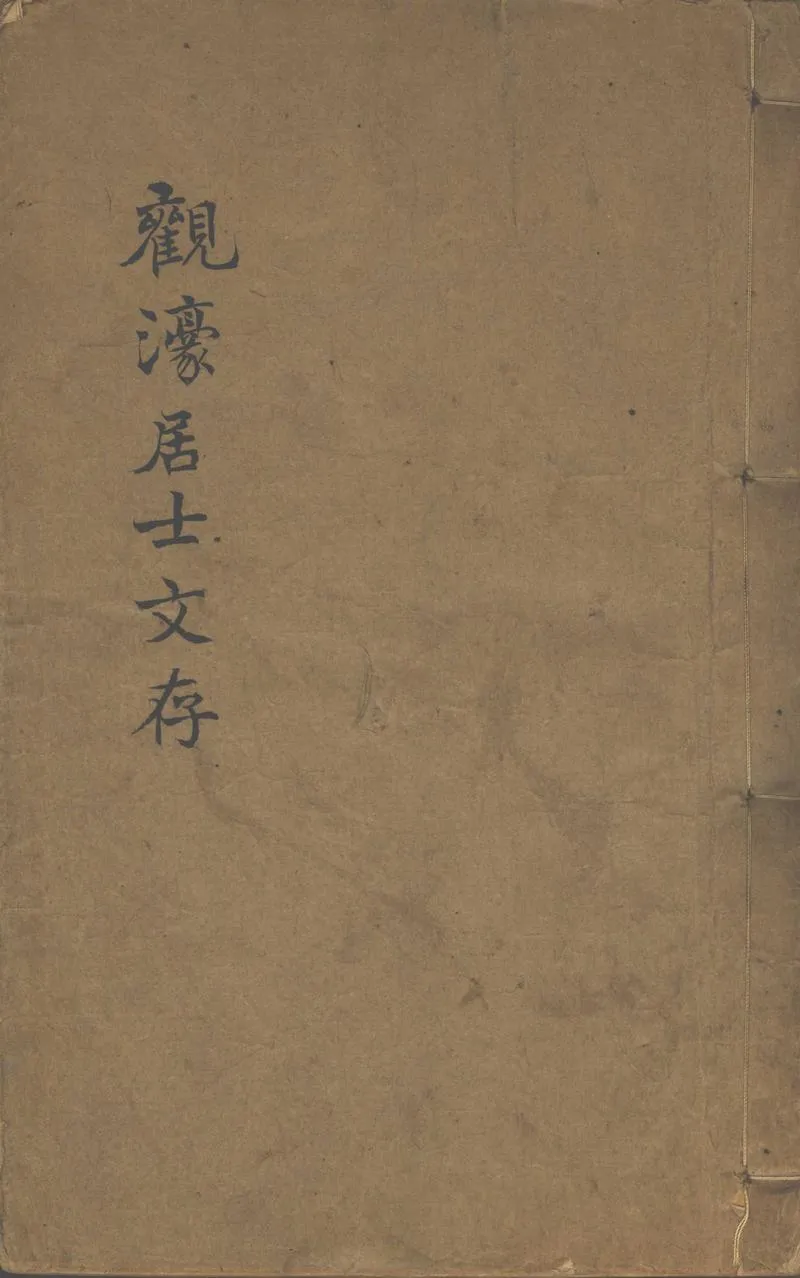 觀濠居士文存